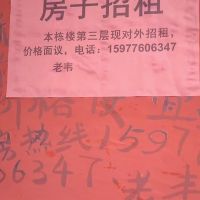 房子招租
本栋楼第三层现对外招租，
价格面议，电话：15977606347
老韦
价格便宜
房热线1597
606347
老韦